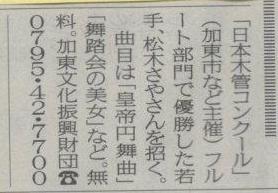 「日本木管コンクール」
（加東市など主催）フル
ート部門で優勝した若
手、松木さやさんを招く。
曲目は「皇帝円舞曲」
「舞踏会の美女」など。無
料。加東文化振興財団☎
0795・42・7700